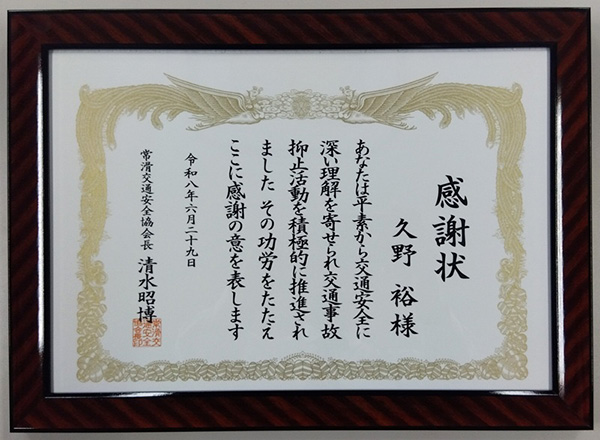 感謝状
久野 裕様
あなたは平素から交通安全に
深い理解を寄せられ交通事故
抑止活動を積極的に推進され
ました その功労をたたえ
ここに感謝の意を表します
令和八年六月二十九日
常滑交通安全協会会長 清水昭博